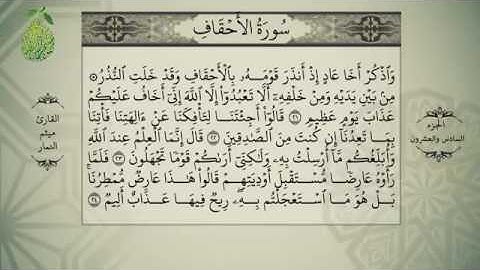 سُورَةُ الأَحْقَافِ
وَٱذْكُرْ أَخَا عَادٍ إِذْ أَنذَرَ قَوْمَهُۥ بِٱلْأَحْقَافِ وَقَدْ خَلَتِ ٱلنُّذُرُ
مِنۢ بَيْنِ يَدَيْهِ وَمِنْ خَلْفِهِۦٓ أَلَّا تَعْبُدُوٓا۟ إِلَّا ٱللَّهَ إِنِّىٓ أَخَافُ عَلَيْكُمْ
عَذَابَ يَوْمٍ عَظِيمٍ ٢١ قَالُوٓا۟ أَجِئْتَنَا لِتَأْفِكَنَا عَنْ ءَالِهَتِنَا فَأْتِنَا
بِمَا تَعِدُنَآ إِن كُنتَ مِنَ ٱلصَّـٰدِقِينَ ٢٢ قَالَ إِنَّمَا ٱلْعِلْمُ عِندَ ٱللَّهِ
وَأُبَلِّغُكُم مَّآ أُرْسِلْتُ بِهِۦ وَلَـٰكِنِّىٓ أَرَىٰكُمْ قَوْمًا تَجْهَلُونَ ٢٣ فَلَمَّا
رَأَوْهُ عَارِضًا مُّسْتَقْبِلَ أَوْدِيَتِهِمْ قَالُوا۟ هَـٰذَا عَارِضٌ مُّمْطِرُنَا
بَلْ هُوَ مَا ٱسْتَعْجَلْتُم بِهِۦ رِيحٌ فِيهَا عَذَابٌ أَلِيمٌ ٢٤
الجزء
السادس والعشرون
القارئ
ميثم
التمار